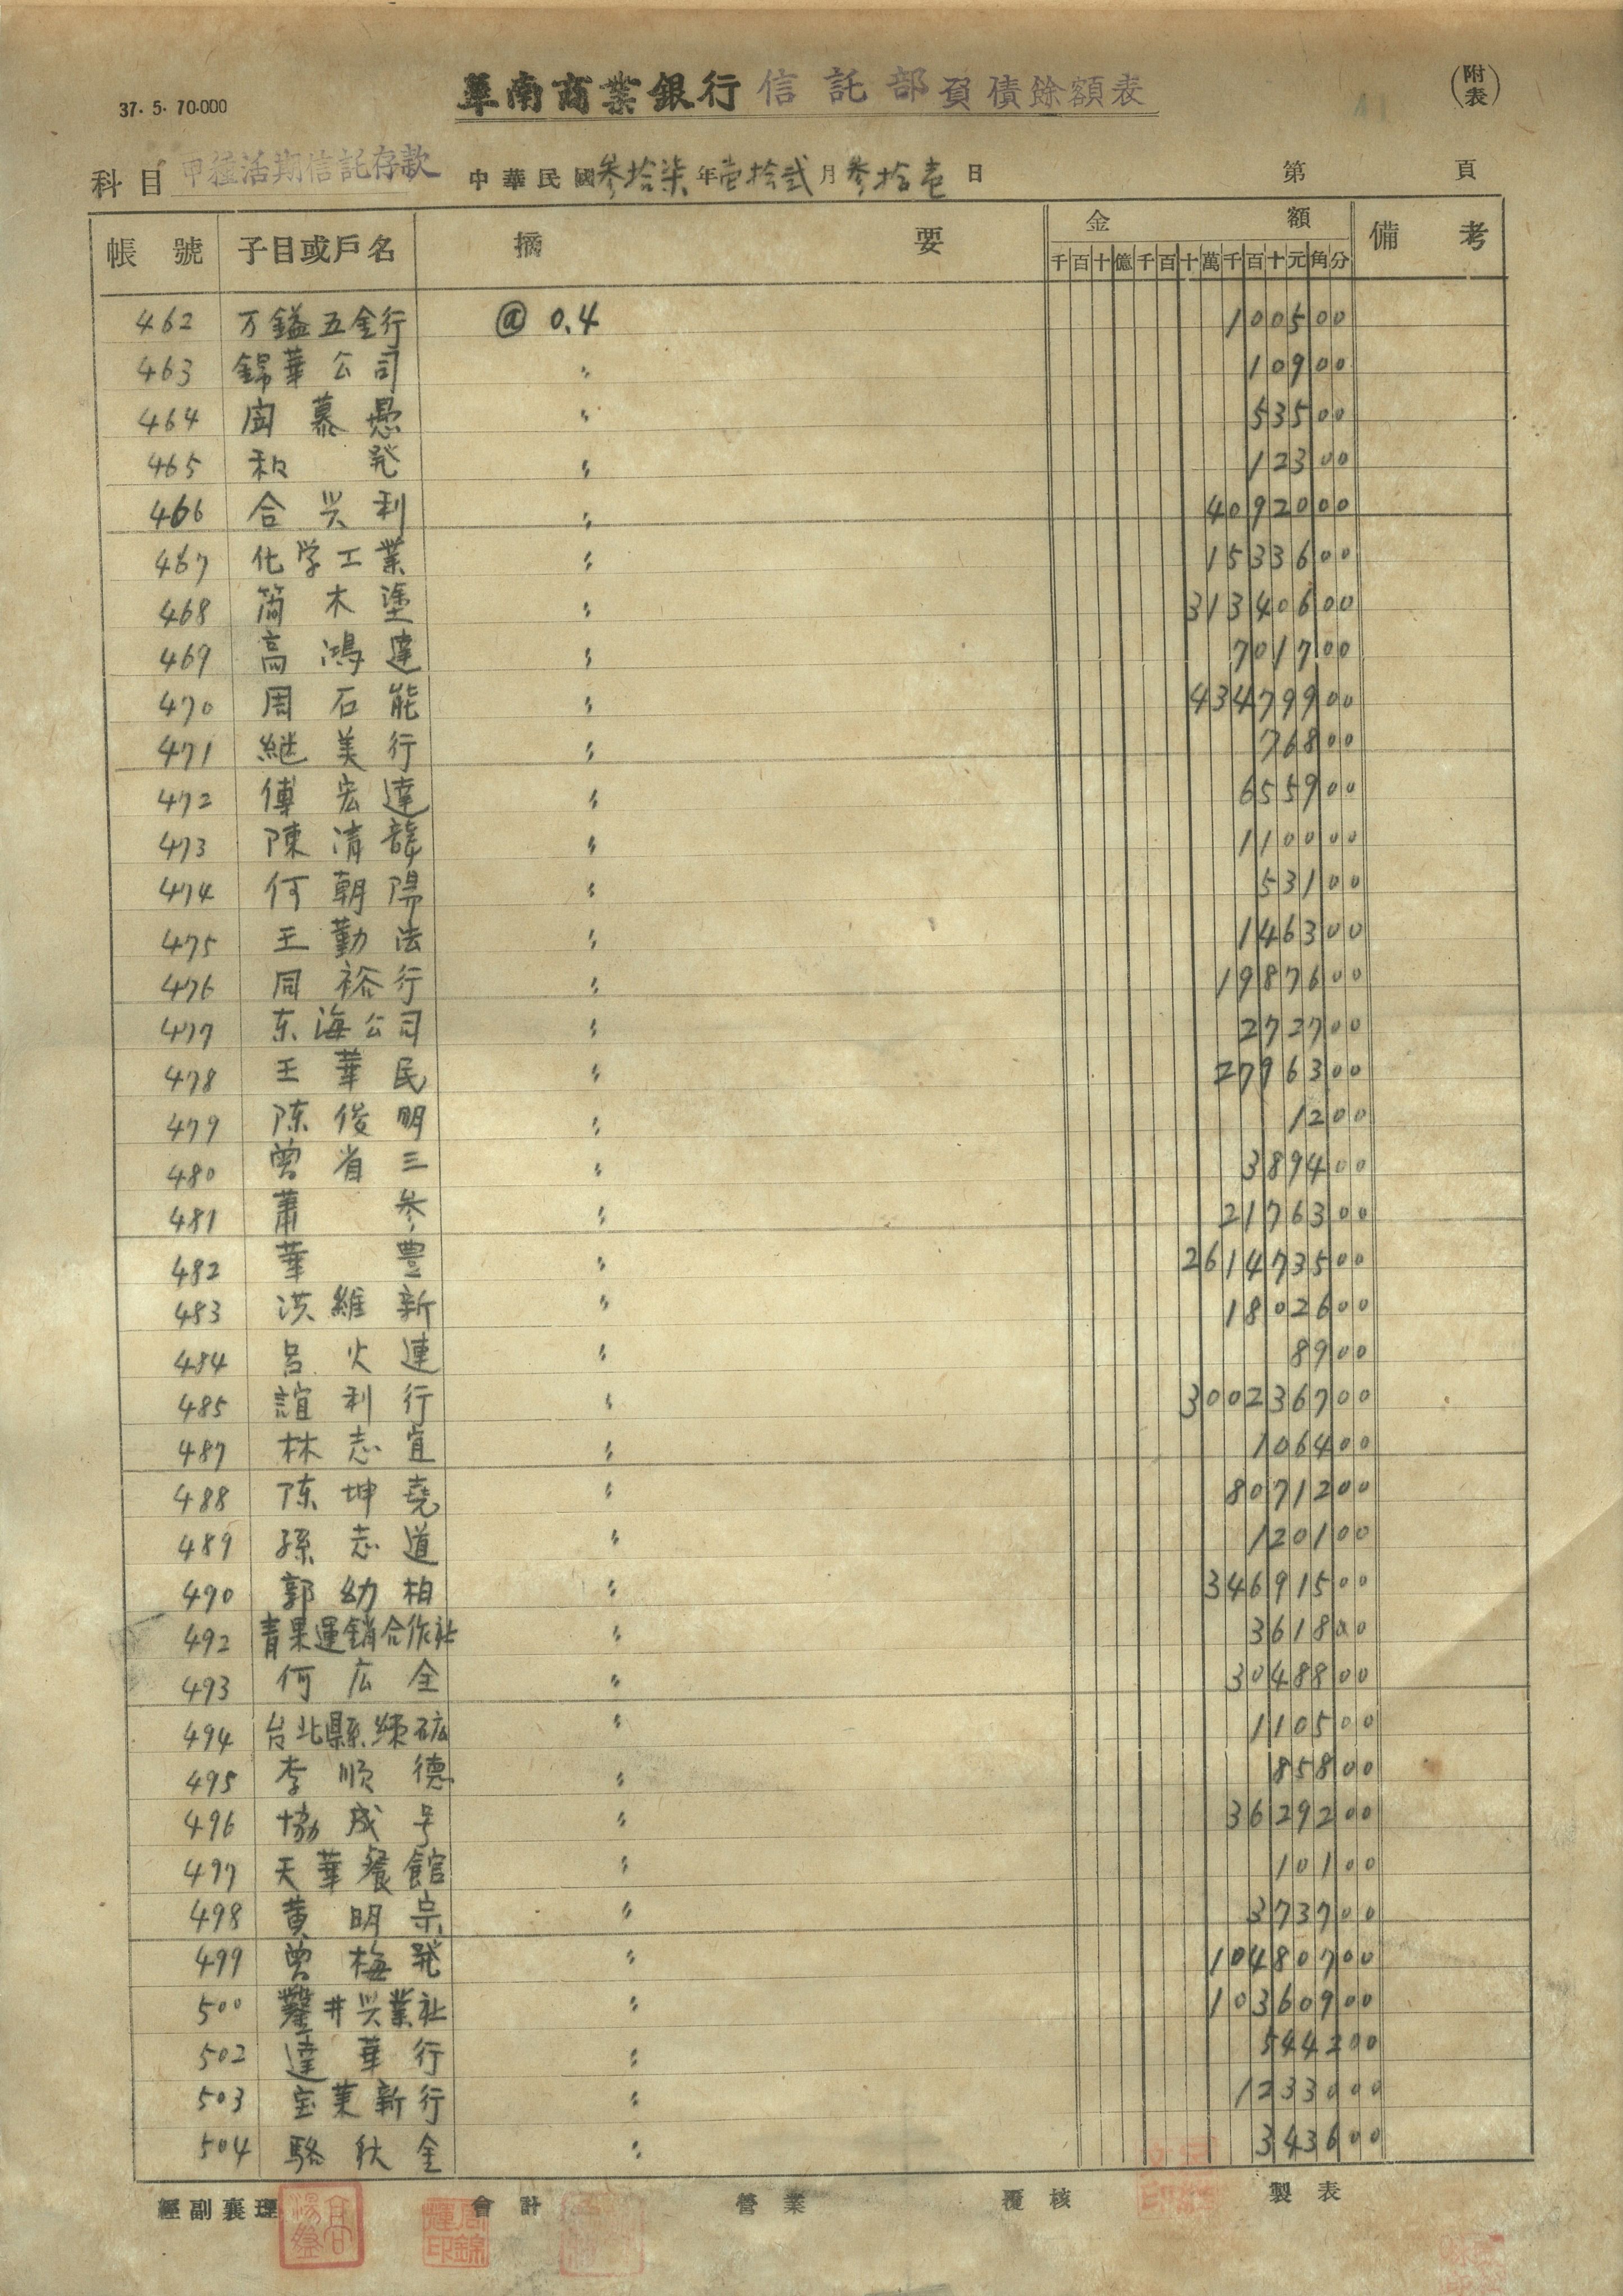 37. 5. 70.000
華南商業銀行信託部負債餘額表
(附表)
科目 甲種活期信託存款 中華民國參拾柒年壹拾貳月參拾壱日 第 頁
帳號 子目或戶名 摘要 金額 備考
千百十億千百十萬千百十元角分
462 万鎰五金行 @ 0.4 100500
463 錦華公司 〃 10900
464 慕愚 〃 53500
465 和発 〃 12300
466 合兴利 〃 4092000
467 化学工業 〃 1533600
468 簡木塗 〃 31340600
469 高鴻達 〃 701700
470 周石能 〃 43479900
471 継美行 〃 76800
472 傅宏達 〃 655900
473 陳清龍 〃 110000
474 何朝陽 〃 53100
475 王勤法 〃 146300
476 同裕行 〃 1987600
477 东海公司 〃 272700
478 王華民 〃 2796300
479 陈俊明 〃 1200
480 曾省三 〃 389400
481 蕭参 〃 2176300
482 華豊 〃 261473500
483 洪維新 〃 1802600
484 呂火連 〃 8900
485 誼利行 〃 300236700
487 林志宜 〃 106400
488 陈坤堯 〃 8071200
489 孫志道 〃 120100
490 郭幼柏 〃 34691500
492 青果運銷合作社 〃 361800
493 何広全 〃 3048800
494 台北縣煉砿 〃 110500
495 李順德 〃 85800
496 協成号 〃 3629200
497 天華餐館 〃 10100
498 黄明宗 〃 373700
499 曾梅発 〃 10480700
500 鑿井兴業社 〃 10360900
502 達華行 〃 544200
503 宝業新行 〃 1233000
504 駱秋金 〃 343600
經副襄理 會計 營業 覆核 製表